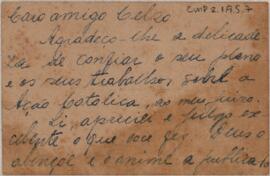 Caro amigo Celso
CMP 2.1.9.5.7
Agradeço-lhe a delicade
za de confiar o seu plano
e os seus trabalhos sobre a
Ação Catolica, ao meu juizo.
Li, apreciei e julgo ex
celente o que você fez. Deus o
abençoe e o anime a publica-lo